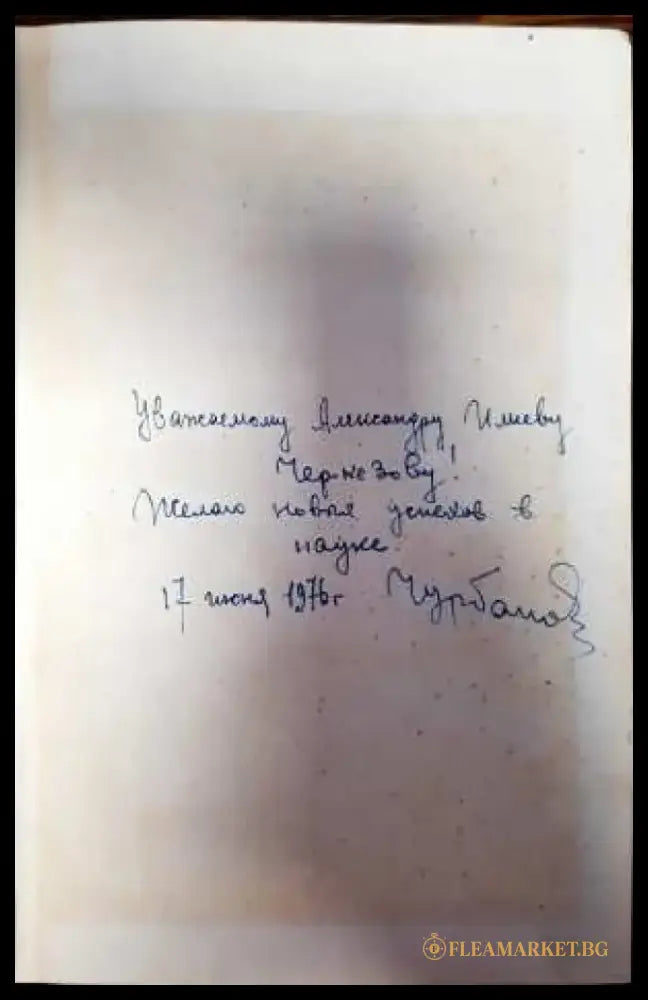 Уважаемому Александру Илиеву
Черкезову!
Желаю новых успехов в
науке.
17 июня 1976г Чурбанов
FLEAMARKET.BG